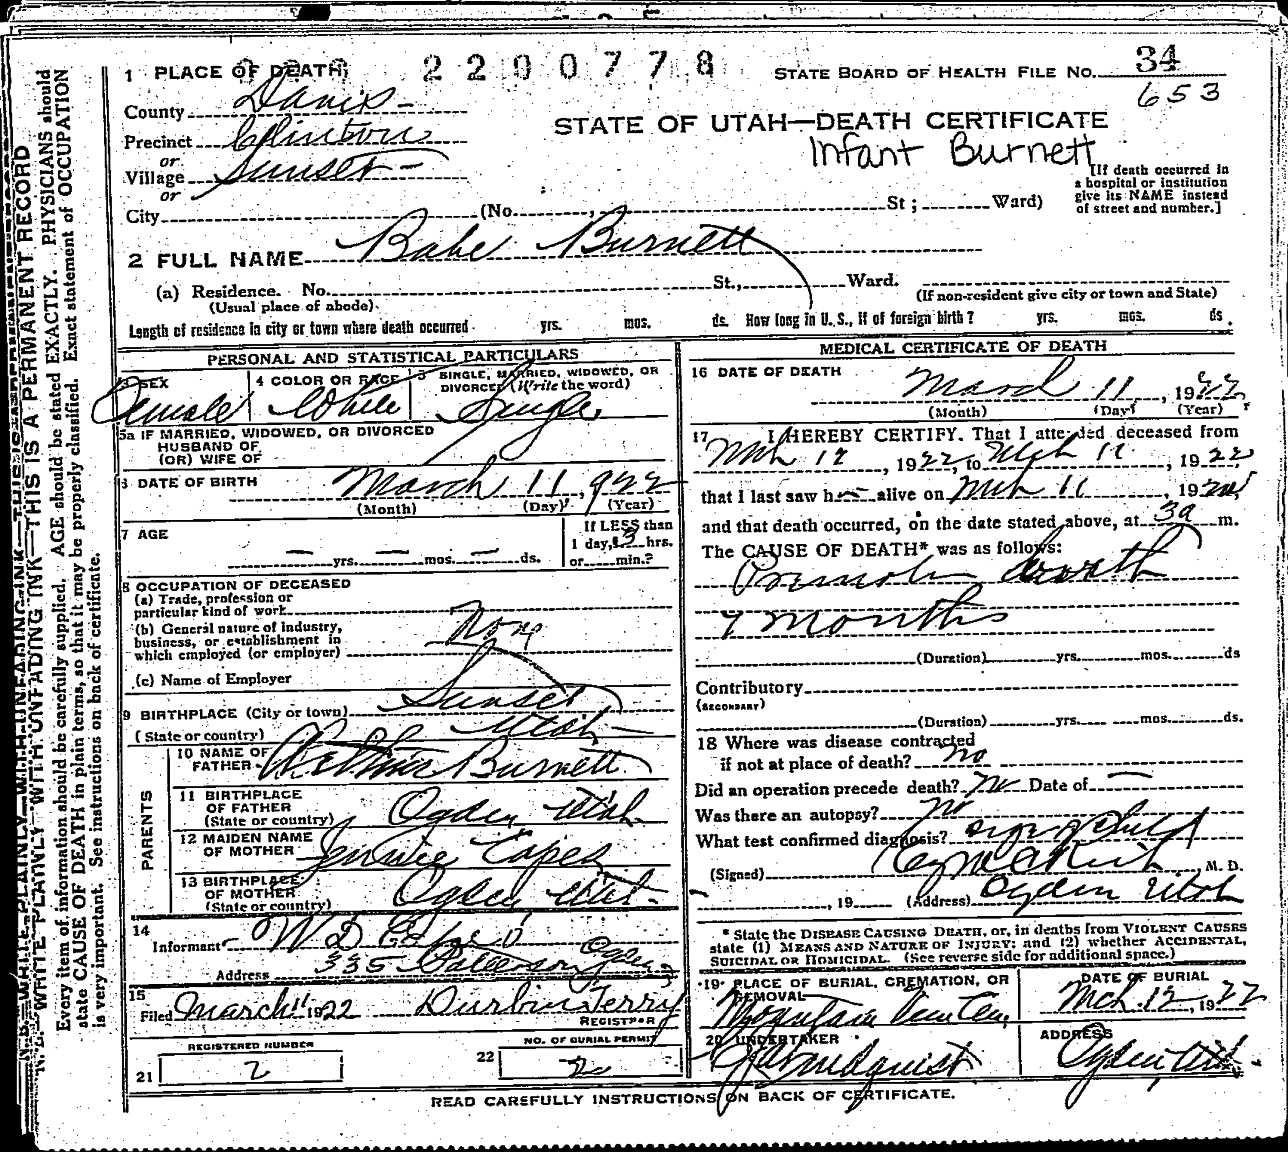 2200778
1 PLACE OF DEATH,
STATE BOARD OF HEALTH FILE NO. 34
653
County Davis
STATE OF UTAH—DEATH CERTIFICATE
Precinct Clinton
Infant Burnett
or
Village Sunset
or
[If death occurred in
a hospital or institution
give its NAME instead
of street and number.]
City (No. , St ; Ward)
2 FULL NAME Babe Burnett
(a) Residence. No. St., Ward.
(Usual place of abode)
(If non-resident give city or town and State)
Length of residence in city or town where death occurred yrs. mos. ds. How long in U. S., if of foreign birth? yrs. mos. ds.
PERSONAL AND STATISTICAL PARTICULARS
3 SEX Female
4 COLOR OR RACE White
5 SINGLE, MARRIED, WIDOWED, OR
DIVORCED (Write the word)
Single
5a IF MARRIED, WIDOWED, OR DIVORCED
HUSBAND OF
(OR) WIFE OF
6 DATE OF BIRTH March 11, 922
(Month) (Day) (Year)
7 AGE
— yrs. — mos. — ds.
If LESS than
1 day, 3 hrs.
or min.?
8 OCCUPATION OF DECEASED
(a) Trade, profession or
particular kind of work
(b) General nature of industry,
business, or establishment in
which employed (or employer)
None
(c) Name of Employer
9 BIRTHPLACE (City or town) Sunset
(State or country) Utah
PARENTS
10 NAME OF
FATHER Arthur Burnett
11 BIRTHPLACE
OF FATHER
(State or country) Ogden Utah
12 MAIDEN NAME
OF MOTHER Jennie Capes
13 BIRTHPLACE
OF MOTHER
(State or country) Ogden Utah
14
Informant W D
Address 335 Patterson Ogden
15
Filed March 11 1922 Durbin Terry
REGISTRAR
REGISTERED NUMBER
21 2
NO. OF BURIAL PERMIT
22 2
MEDICAL CERTIFICATE OF DEATH
16 DATE OF DEATH
March 11, 1922
(Month) (Day) (Year)
17 I HEREBY CERTIFY. That I attended deceased from
Mch 12, 1922, to Mch 11, 1922
that I last saw h alive on Mch 11, 192
and that death occurred, on the date stated above, at 3a m.
The CAUSE OF DEATH* was as follows:
Premature birth
7 months
(Duration) yrs. mos. ds
Contributory
(SECONDARY)
(Duration) yrs. mos. ds.
18 Where was disease contracted
if not at place of death? no
Did an operation precede death? No Date of —
Was there an autopsy? no
What test confirmed diagnosis? sign of Child
(Signed) M. D.
, 19 (Address) Ogden Utah
* State the DISEASE CAUSING DEATH, or, in deaths from VIOLENT CAUSES
state (1) MEANS AND NATURE OF INJURY; and (2) whether ACCIDENTAL,
SUICIDAL OR HOMICIDAL. (See reverse side for additional space.)
19 PLACE OF BURIAL, CREMATION, OR
REMOVAL
Mountain View Cem.
DATE OF BURIAL
Mch. 12, 1922
20 UNDERTAKER
Lindquist
ADDRESS
Ogden Utah
READ CAREFULLY INSTRUCTIONS ON BACK OF CERTIFICATE.
N. B. WRITE PLAINLY WITH UNFADING INK—THIS IS A PERMANENT RECORD
Every item of information should be carefully supplied. AGE should be stated EXACTLY. PHYSICIANS should
state CAUSE OF DEATH in plain terms, so that it may be properly classified. Exact statement of OCCUPATION
is very important. See instructions on back of certificate.